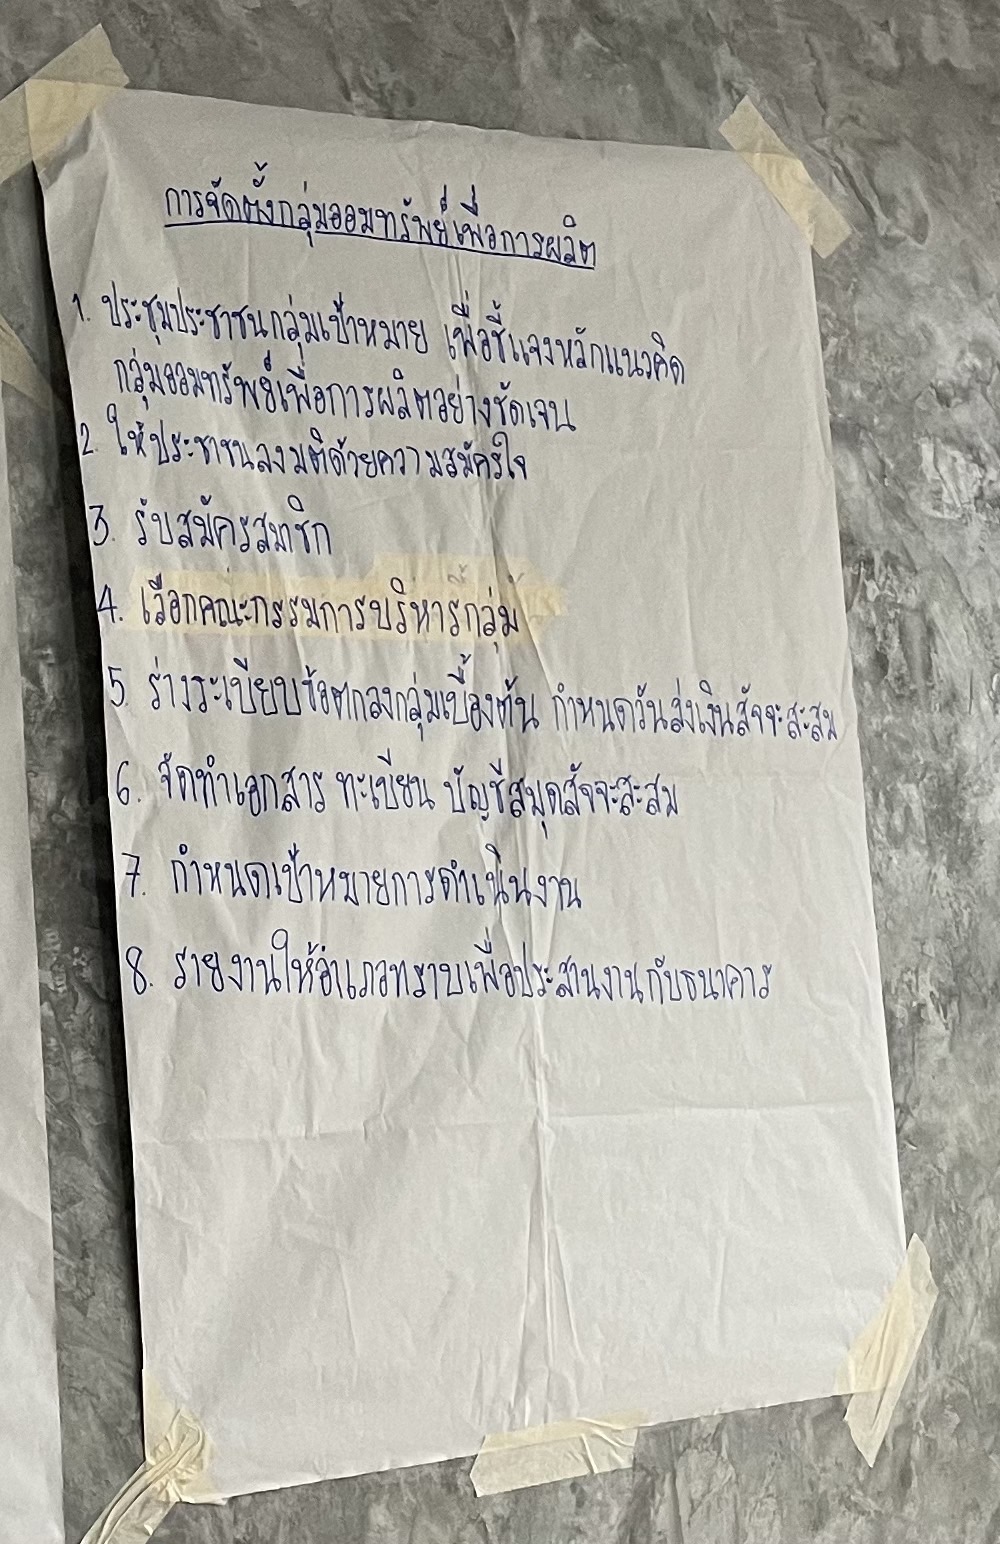 การจัดตั้งกลุ่มออมทรัพย์เพื่อการผลิต
1. ประชุมประชาชนกลุ่มเป้าหมาย เพื่อชี้แจงหลักแนวคิด
กลุ่มออมทรัพย์เพื่อการผลิตอย่างชัดเจน
2. ให้ประชาชนลงมติด้วยความสมัครใจ
3. รับสมัครสมาชิก
4. เลือกคณะกรรมการบริหารกลุ่ม
5. ร่างระเบียบข้อตกลงกลุ่มเบื้องต้น กำหนดวันส่งเงินสัจจะสะสม
6. จัดทำเอกสาร ทะเบียน บัญชีสมุดสัจจะสะสม
7. กำหนดเป้าหมายการดำเนินงาน
8. รายงานให้อำเภอทราบเพื่อประสานงานกับธนาคาร